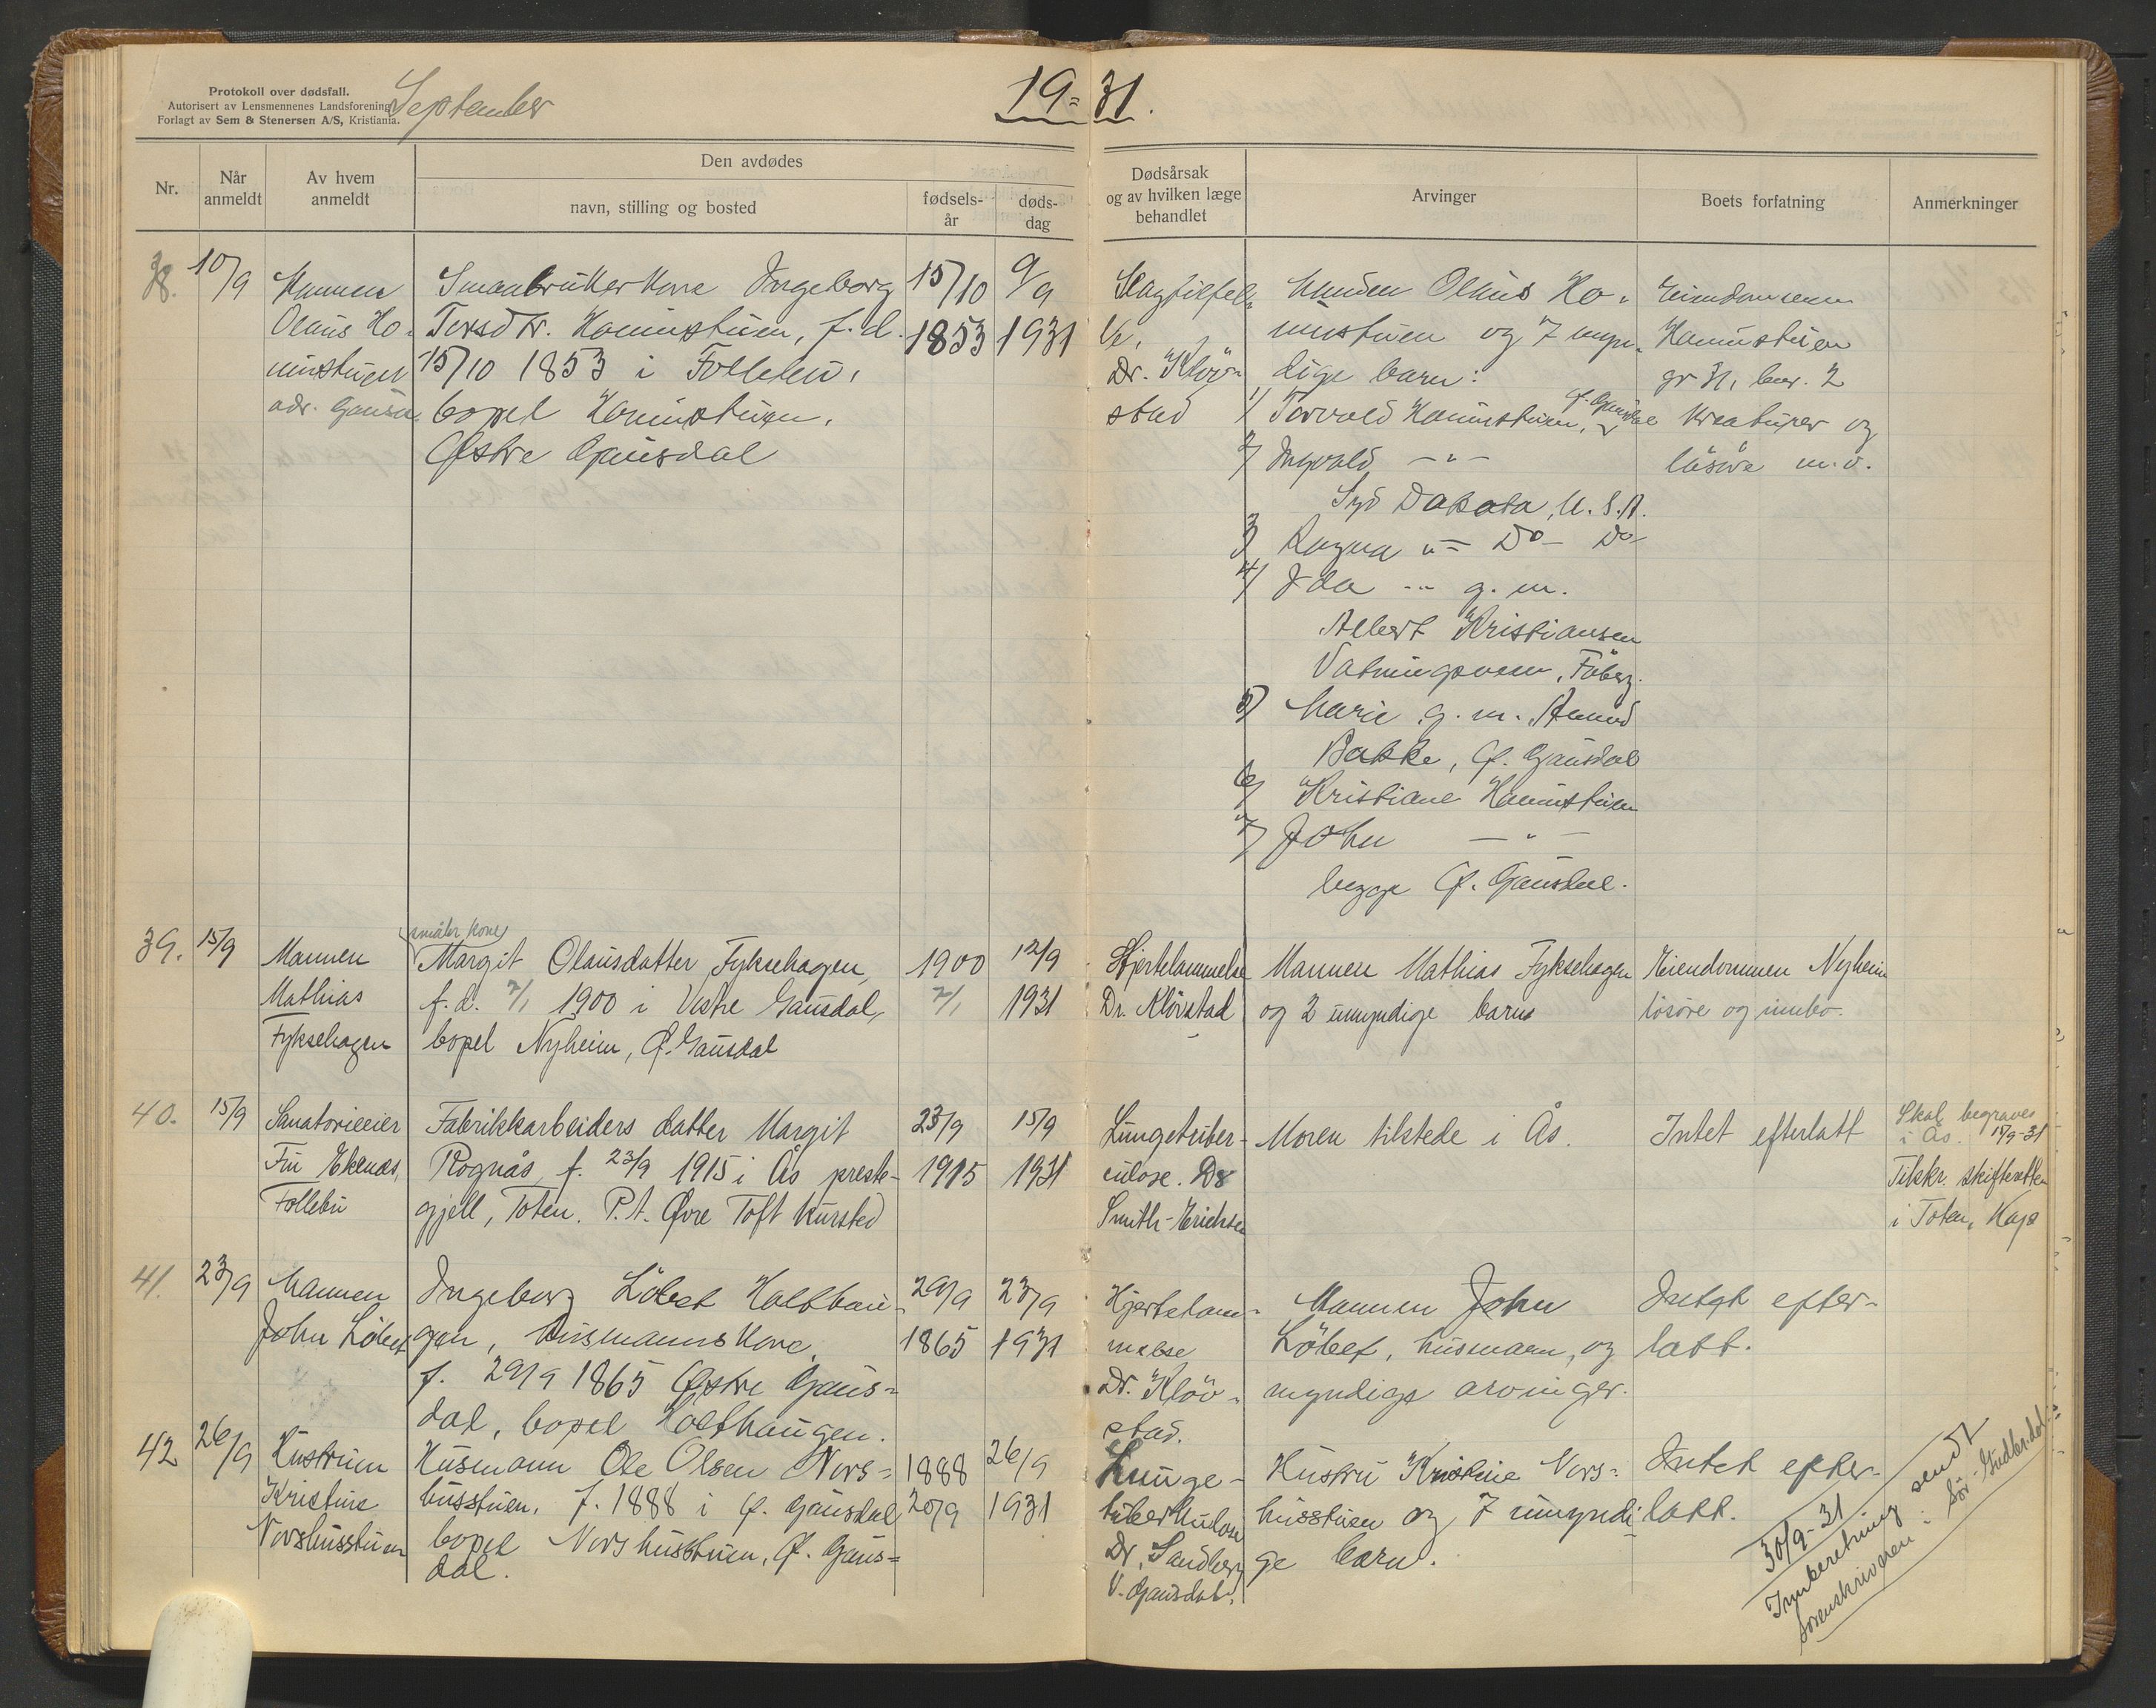 Protokoll over dødsfall.
Autorisert av Lensmennenes Landsforening.
Forlagt av Sem & Stenersen A/S, Kristiania.
September
19=31.
Nr.
Når anmeldt
Av hvem anmeldt
Den avdødes
navn, stilling og bosted
fødsels-år
døds-dag
Dødsårsak og av hvilken læge behandlet
Arvinger
Boets forfatning
Anmerkninger
38.
10/9
Mannen
Olaus Ho-
minstuen
adr. Gausdal
Småbrukerkone Ingeborg
Torsdtr. Hominstuen, f. d.
15/10 1853 i Follebu,
bopel Hominstuen,
Østre Gausdal
15/10
1853
9/9
1931
Slagtilfel-
le,
Dr. Klöv-
stad
Manden Olaus Ho-
minstuen og 7 myn-
dige barn:
1/ Torvald Hominstuen, Ø. Gausdal
2/ Ingvald — " —
Syd Dakota, U.S.A.
3/ Ragna " — Do — Do
4/ Ida — " — g. m.
Albert Kristiansen
Fåberg.
5/ Marie g. m. Amund
Bakke, Ø. Gausdal
6/ Kristiane Hominstuen
7/ John — " —
begge Ø. Gausdal.
Eiendommen
Hominstuen
gr 31, bnr. 2
kreaturer og
lösöre m.v.
39.
15/9
Mannen
Mathias
Fyksehagen
småbr. kone
Margit Olausdatter Fyksehagen,
f. d. 2/1 1900 i Vestre Gausdal,
bopel Nyheim, Ø. Gausdal
1900
2/1
12/9
1931
Hjertelammelse
Dr. Klövstad
Mannen Mathias Fyksehagen
og 2 umyndige barn
Eiendommen Nyheim
lösöre og innbo.
40.
15/9
Sanatorieeier
Fru Ekenæs,
Follebu
Fabrikkarbeiders datter Margit
Rognås, f. 23/9 1915 i Ås preste-
gjell, Toten. P.t. Øvre Toft kursted
23/9
1915
15/9
1931
Lungetuber-
culose. Dr
Smith-Erichsen
Moren tilstede i Ås.
Intet efterlatt
Skal begraves
i Ås. 15/9-31
Tilskr. skifteretten
i Toten, Kap
41.
23/9
Mannen
John Löbet
Ingeborg Löbet Holthau-
gen, husmannskone,
f. 29/9 1865 Østre Gaus-
dal, bopel Holthaugen.
29/9
1865
23/9
1931
Hjertelam-
melse
Dr. Klöv-
stad.
Mannen John
Löbet, husmann, og
myndige arvinger.
Intet efter-
latt.
42
26/9
Hustruen
Kristine
Norshusstuen
Husmann Ole Olsen Nors-
husstuen, f. 1888 i Ø. Gausdal
bopel Norshusstuen, Ø. Gaus-
dal.
1888
20/9
26/9
1931
Lunge-
tuberkulose
Dr. Sandberg
V. Gausdal.
Hustru Kristine Nors-
husstuen og 7 umyndi-
ge barn.
Intet efter-
latt.
30/9-31
Innberetning sendt
sorenskriveren i Sör-Gudbr.dal.